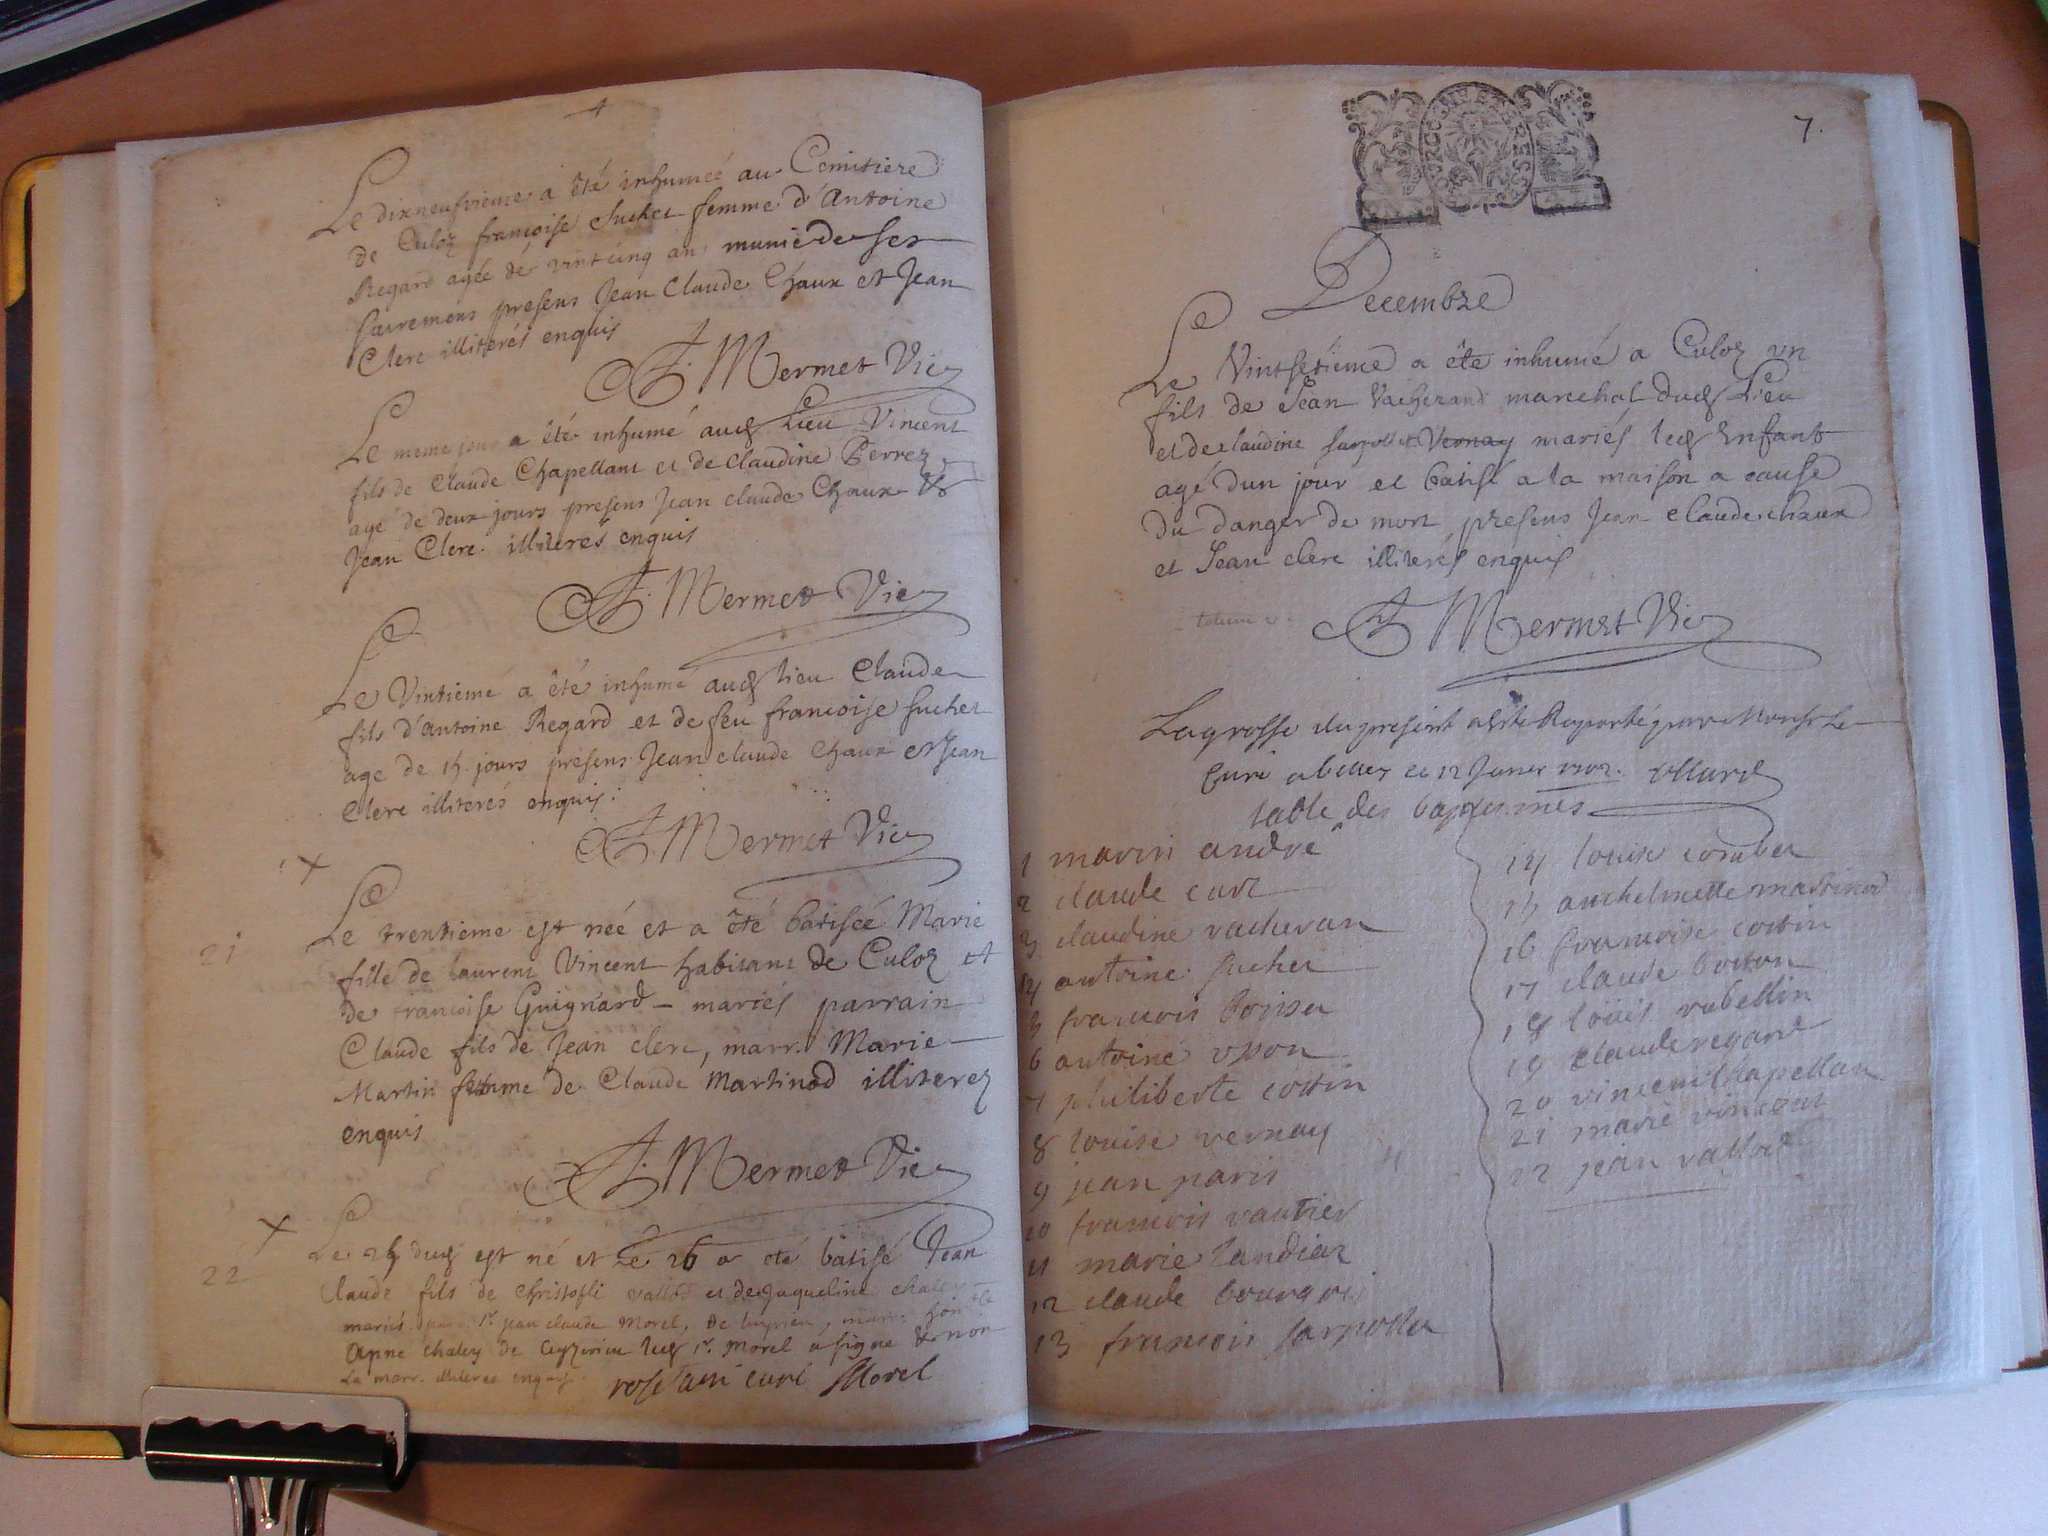 Le dixneufvieme a été inhumeé au Cemitiere
de Culoz françoise Suchet femme d'Antoine
Regard agée de vintcinq an munie de ses
sacremens presens Jean Claude Chaux et Jean
Clerc illiterés enquis
Mermet Vic
Le meme jour a été inhumé aud Lieu Vincent
fils de Claude Chapellant et de Claudine Perrez
agé de deux jours presens Jean claude Chaux &
Jean Clerc illiterés enquis
Mermet Vic
Le Vintieme a été inhumé aud lieu Claude
fils d'Antoine Regard et de feu francoise Suchet
age de 15 jours presens Jean claude Chaux et Jean
Clerc illiterés enquis
Mermet Vic
21 Le trentieme est née et a êté batiseé Marie
fille de laurent Vincent habitant de Culoz et
de francoise Guignard – mariés parrain
Claude fils de Jean clerc, marr. Marie
Martin femme de Claude Martinod illiterez
enquis
Mermet Vic
22 Le 25 dud est né et Le 26 a eté batisé Jean
Claude fils de Christofle vallod et de Jaqueline chaley
mariés jean claude Morel, de
Anne chaley de led Sr. Morel a signé & non
La marr. illiteree enquise
cure Morel
7.
Decembre
Le Vintsetieme a ête inhumé a Culoz un
fils de Jean Vacherand marechal dud Lieu
et de claudine Vernay mariés led Enfant
agé dun jour et batisé a la maison a cause
du danger de mort presens Jean claude chaux
et Jean clerc illiterés enquis
Mermet Vic
La grosse du present a este Raporté par Monsr Le
Curé a belley ce 12 Janvr 1702.
table des baptesmes
1 marin andré
2 claude curt
3 claudine vacheran
4 antoine suchet
5 francois
6 antoine
7 philiberte cottin
8 louise vernay
9 jean paris
10 francois vautier
11 marie landiaz
12 claude bourgois
13 francois
14 louise combet
15 anthelmette martinod
16 francoise cottin
17 claude
18 loüis rubellin
19 Claude regard
20 vincent Chapellan
21 marie vincent
22 jean vallod